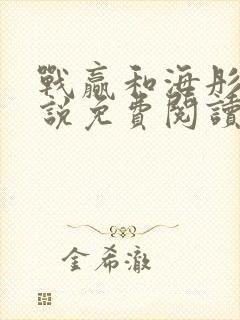 戰贏和海彤
說免費閱讀
金希澈